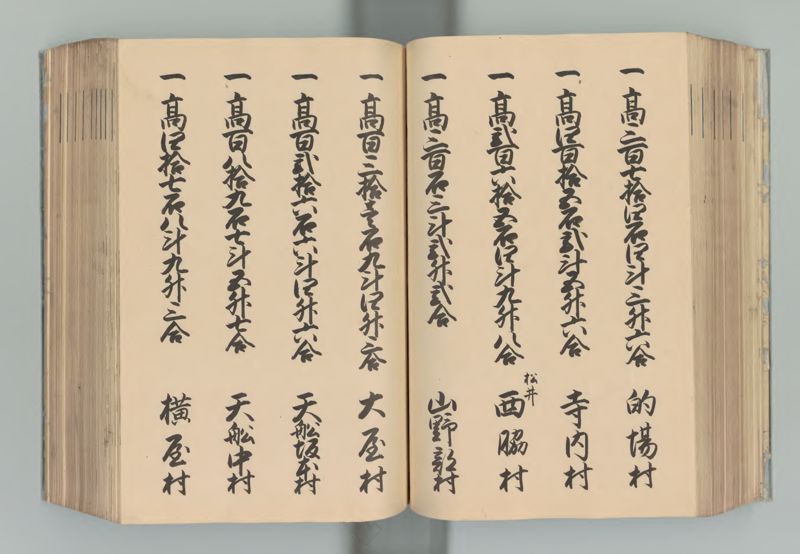 一高三百七拾四石四斗三升六合 的場村
一高四百拾五石弐斗五升六合 寺内村
一高弐百六拾五石四斗九升八合 松井 西脇村
一高三百石三斗弐升弐合 山野部村
一高百三拾壱石九斗四升三合 大屋村
一高百弐拾六石六斗四升六合 天船坂本村
一高百八拾九石七斗五升七合 天船中村
一高四拾七石八斗九升三合 横屋村